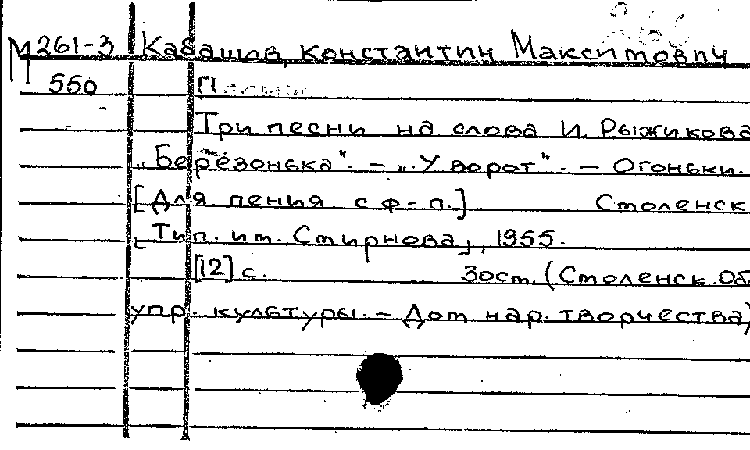 М 261-3 Кабашов, Константин Максимович
550
Три песни на слова И. Рыжикова
„Берёзонька“. – „У ворот“. – Огоньки.
[Для пения с ф-п.] Смоленск
[Тип. им. Смирнова], 1955.
[12] с. 30см. (Смоленск. Об
упр. культуры. – Дом нар. творчества)